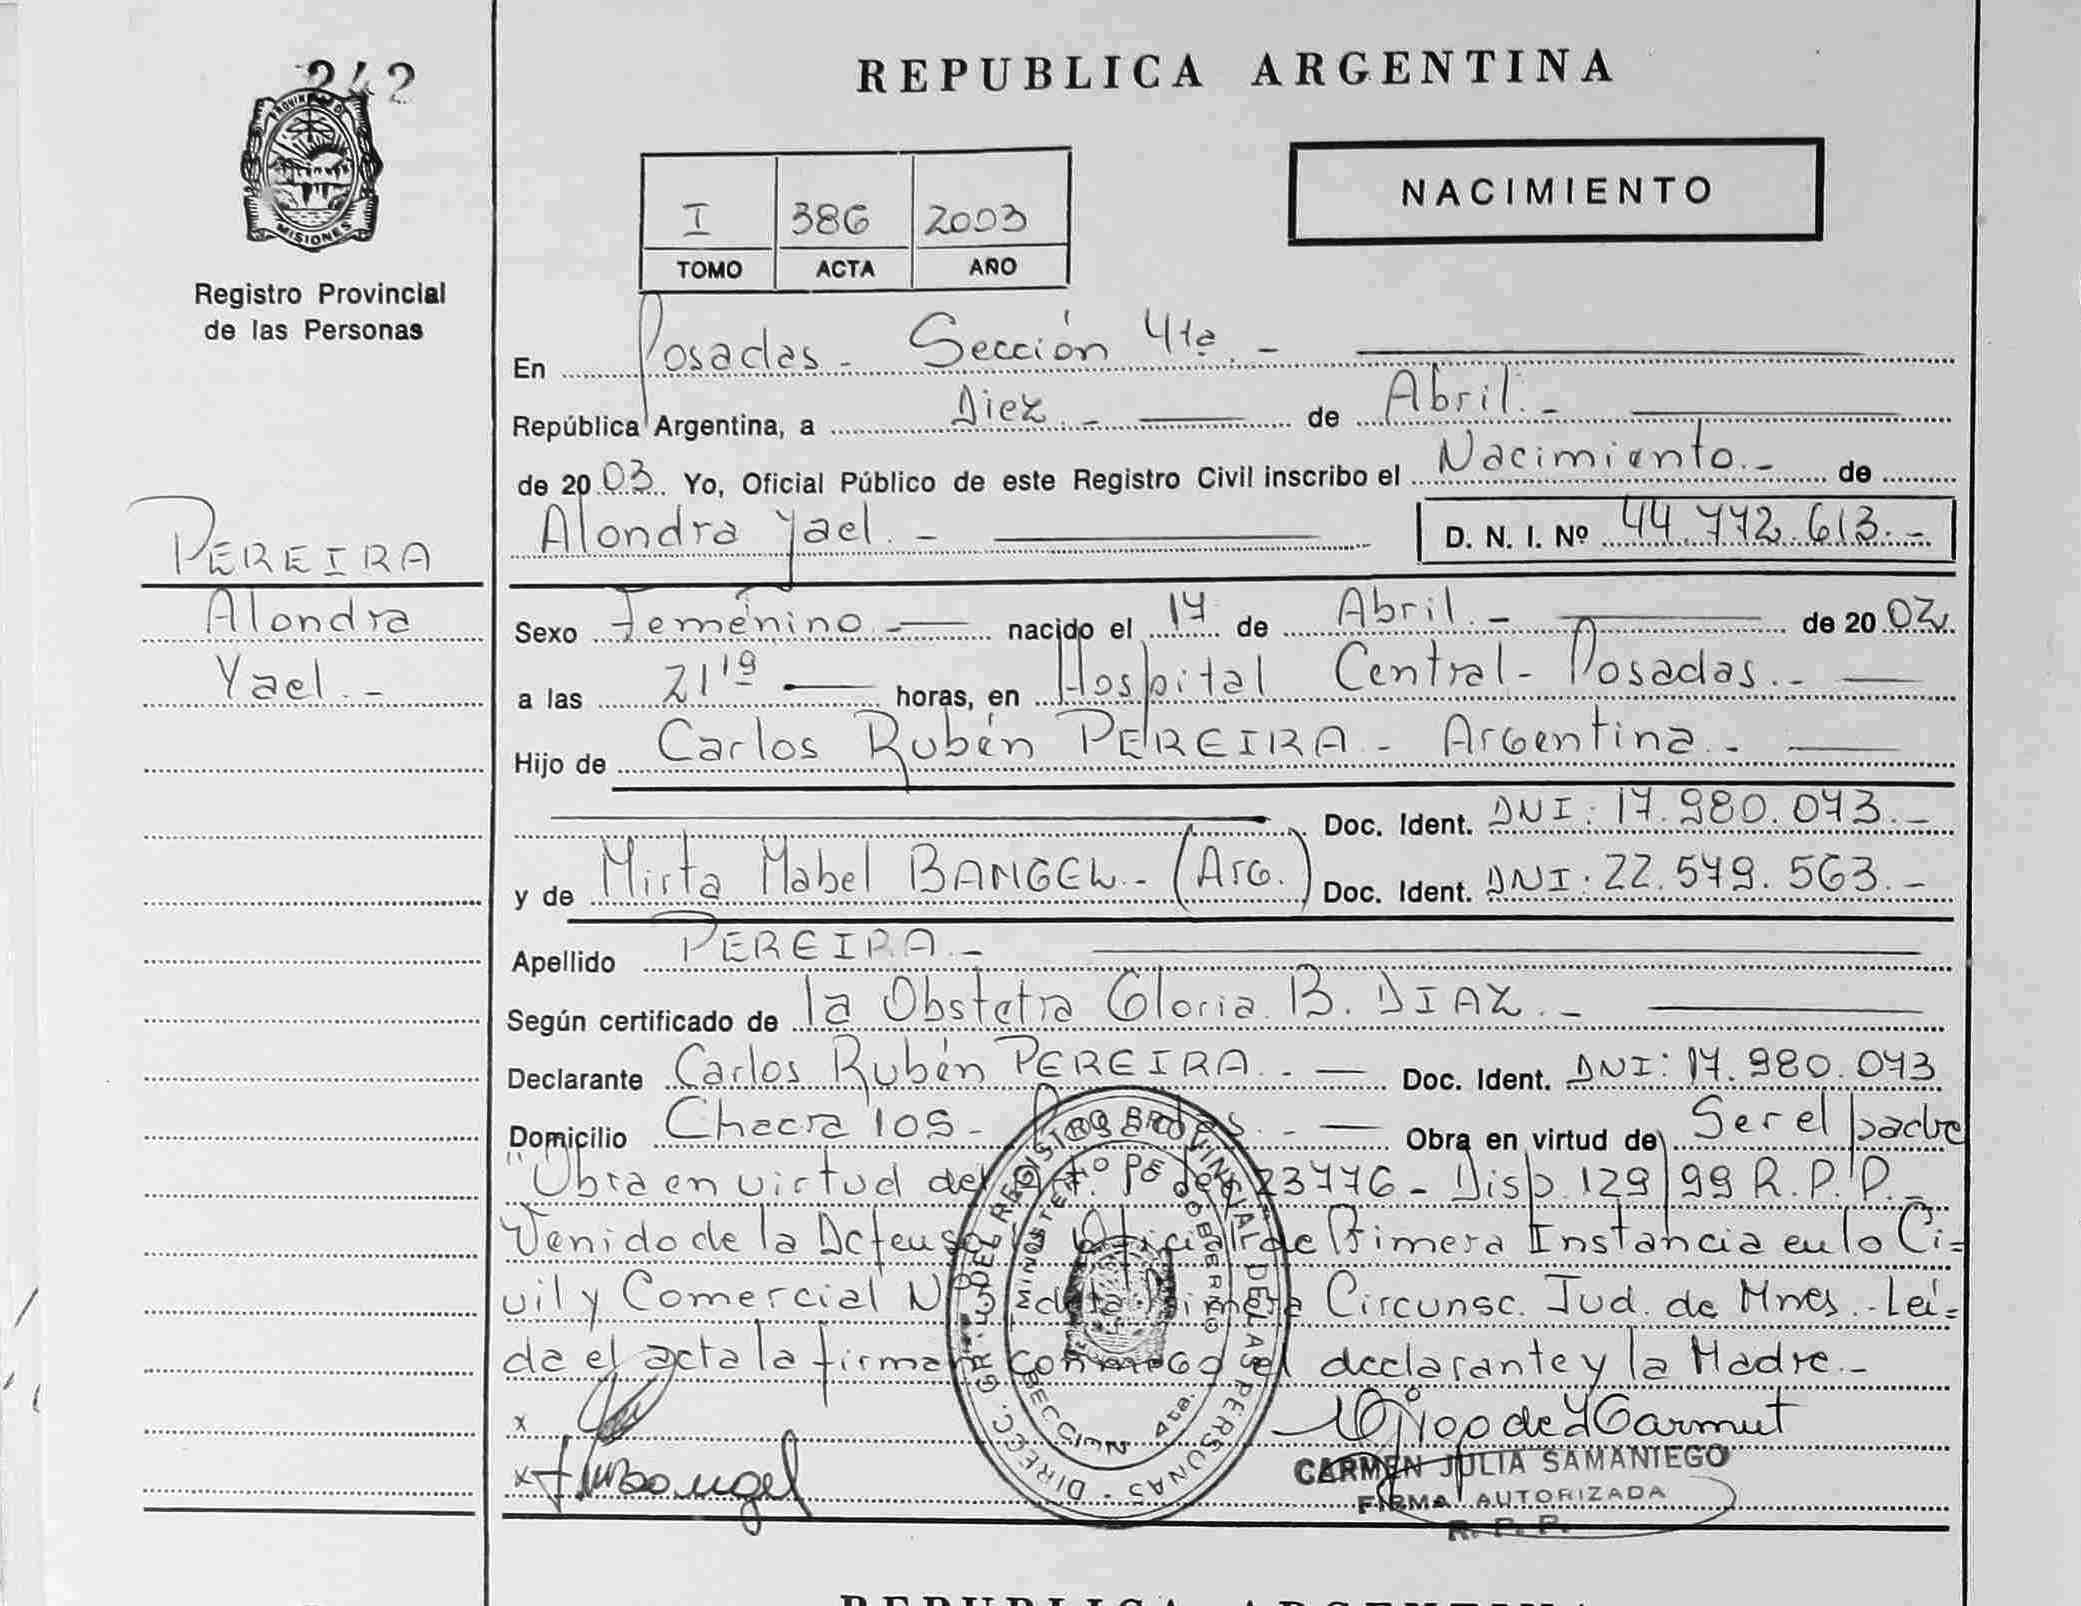 242
PROVINCIA DE
MISIONES
Registro Provincial
de las Personas
REPUBLICA ARGENTINA
NACIMIENTO
I 386 2003
TOMO ACTA AÑO
En Posadas - Sección 4ta. -
República Argentina, a Diez. - de Abril. -
de 2003. Yo, Oficial Público de este Registro Civil inscribo el Nacimiento. - de
Alondra Yael. - D. N. I. Nº 44.772.613. -
PEREIRA
Alondra
Yael. -
Sexo Femenino. - nacido el 17 de Abril. - de 2002.
a las 21'19 horas, en Hospital Central - Posadas. -
Hijo de Carlos Rubén PEREIRA - Argentina. -
Doc. Ident. DNI: 17.980.073. -
y de Mirta Mabel BANGEL. - (Arg.) Doc. Ident. DNI: 22.579.563. -
Apellido PEREIRA. -
Según certificado de la Obstetra Gloria B. DIAZ. -
Declarante Carlos Rubén PEREIRA. - Doc. Ident. DNI: 17.980.073
Domicilio Chacra 105 - Posadas. - Obra en virtud de Ser el padre
"Obra en virtud del 23776 - Disp. 129/99 R.P.P. -
Venido de la Defensoría Oficial de Primera Instancia en lo Ci=
vil y Comercial Nº de la Primera Circunsc. Jud. de Mnes. - Leí=
da el acta la firman conmigo el declarante y la Madre. -
x
x
CARMEN JULIA SAMANIEGO
FIRMA AUTORIZADA
R. P. P.
DIRECC. GRAL. DEL REGISTRO PROVINCIAL DE LAS PERSONAS
MINISTERIO DE GOBIERNO
SECCION 4ta.
REPUBLICA ARGENTINA